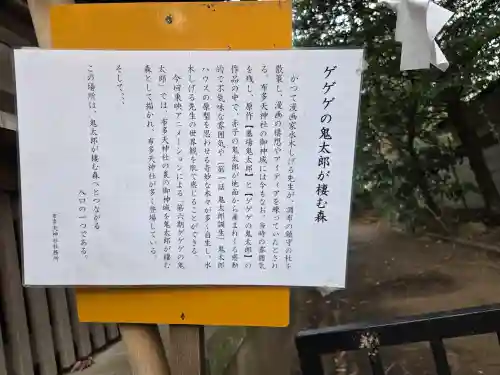 ゲゲゲの鬼太郎が棲む森
かつて漫画家水木しげる先生が、調布の鎮守の杜を
散策し、漫画の構想やアイディアを練っていたとされ
る。布多天神社の御神域には今もなお、当時の雰囲気
を残し、原作【墓場鬼太郎】と【ゲゲゲの鬼太郎】の
作品の中で、赤子の鬼太郎が地面から産まれくる感動
的で不気味な雰囲気や「第一話 鬼太郎誕生」鬼太郎
ハウスの原型を思わせる奇妙な木々が多く自生し、水
木しげる先生の世界観を肌で感じることができる。
今回東映アニメーションによる「第六期ゲゲゲの鬼
太郎」では、布多天神社の裏の御神域を鬼太郎が棲む
森として描かれ、布多天神社が多く登場している。
そして、、、
この場所は、鬼太郎が棲む森へとつながる
入口の一つである。
布多天神社社務所